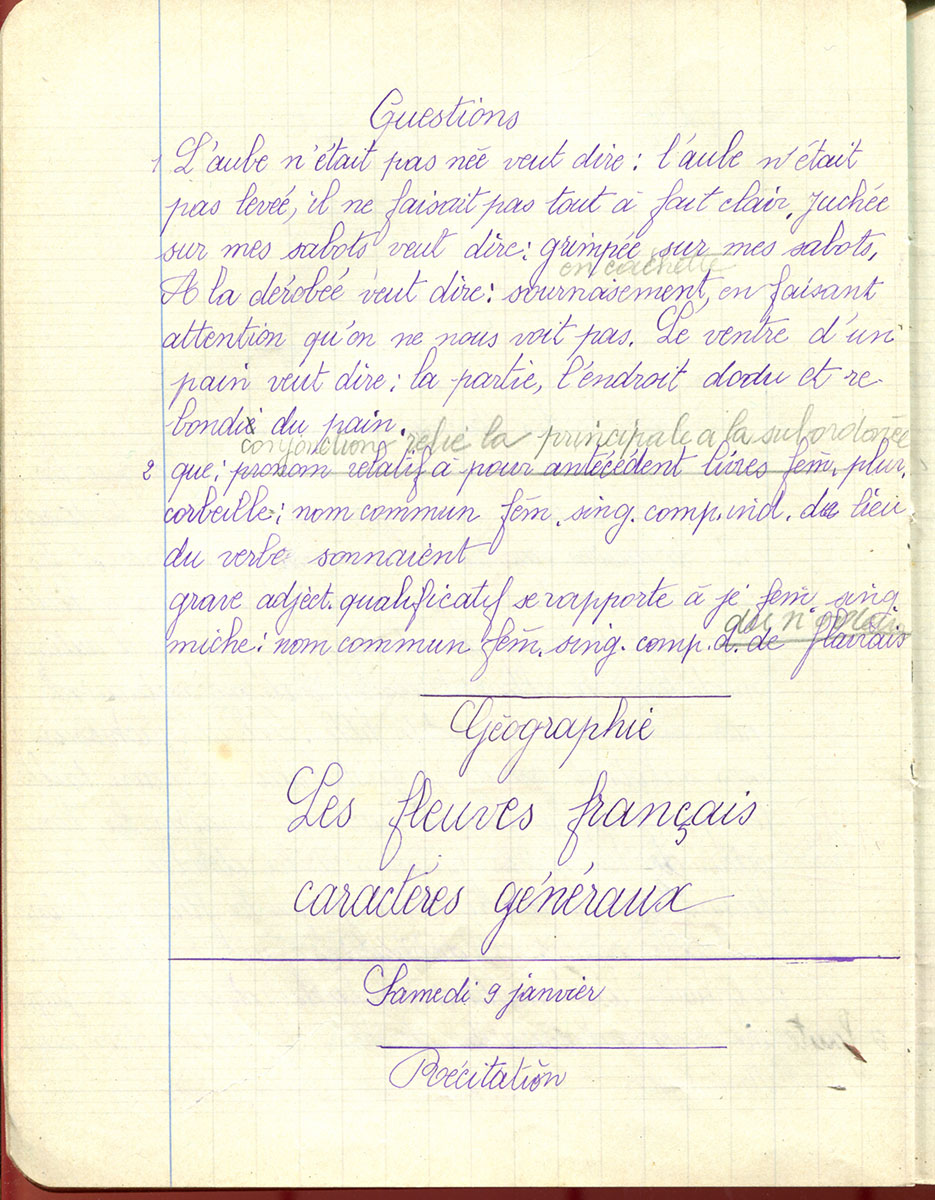 Questions
1 L'aube n'était pas née veut dire : l'aube n'était
pas levée, il ne faisait pas tout à fait clair. Juchée
sur mes sabots veut dire : grimpée sur mes sabots,
en cachette
A la dérobée veut dire : sournaisement, en faisant
attention qu'on ne nous voit pas. Le ventre d'un
pain veut dire : la partie, l'endroit dodu et re-
bondi du pain.
conjonction relie la principale à la subordonée
2 que : pronom relatif a pour antécédent livres fém. plur.
corbeille : nom commun fém. sing. comp. ind. de lieu
du verbe sonnaient
grave adject. qualificatif se rapporte à je fém sing.
du n
miche : nom commun fém. sing. comp. d. de flairais
Géographie
Les fleuves français
caractères généraux
Samedi 9 janvier
Récitation